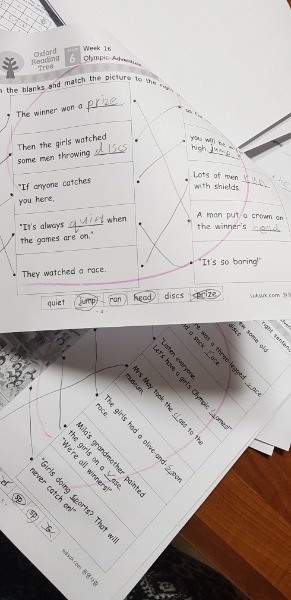 Oxford
Reading
Tree
6
Week 16
Olympic Adventure
the blanks and match the picture to the
The winner won a prize
Then the girls watched
some men throwing discs
"If anyone catches
you here,
"It's always quiet when
the games are on."
They watched a race.
you will be
high jump
Lots of men run
with shields.
A man put a crown on
the winner's head
"It's so boring!"
quiet jump ran head discs prize
- 4 -
suksuk.com
was a three-legged race
"Listen everyone
Let's have a girls Olympic games!"
Mrs May took the class to the
museum.
The girls had a olive-and-spoon
race.
Mila's grandmother painted
the girls on a vase.
"We're all winners!"
"Girls doing sports? That will
never catch on!"
sp
sp
suksuk.com